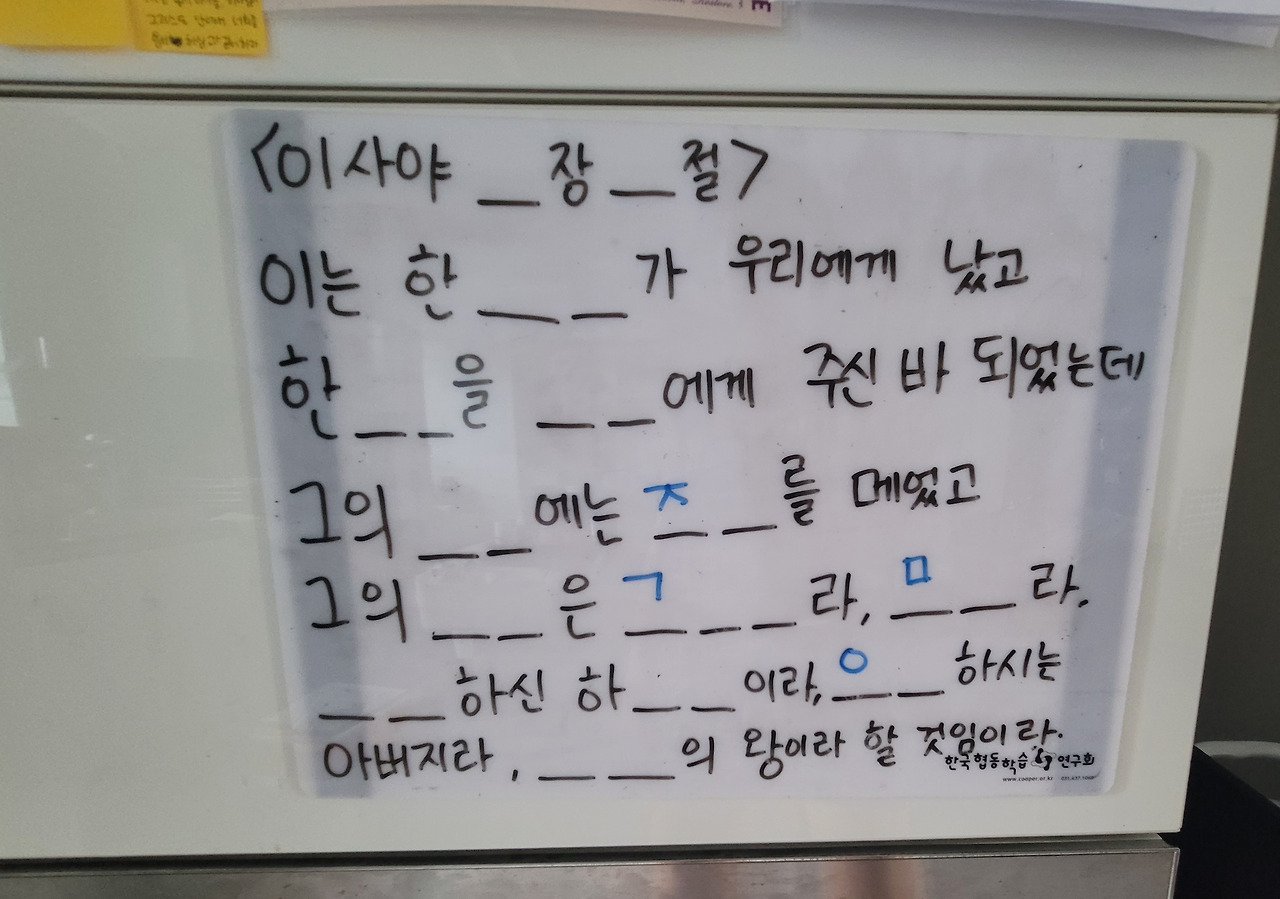 <이사야 _ 장 _ 절>
이는 한 _ _ 가 우리에게 났고
한 _ _ 을 _ _ 에게 주신 바 되었는데
그의 _ _ 에는 ㅈ _ _ 를 메었고
그의 _ _ 은 ㄱ _ _ _ 라, ㅁ _ _ 라,
_ _ 하신 하 _ _ 이라, ㅇ _ _ 하시는
아버지라, _ _ 의 왕이라 할 것임이라.
한국협동학습연구회
www.cooper.or.kr